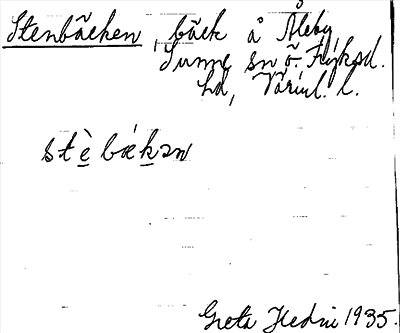 Stenbäcken, bäck å Åleby,
Sunne sn Ö. Fryksd.
hd, Värml. l.
stè bäkən
Greta Hedin 1935.